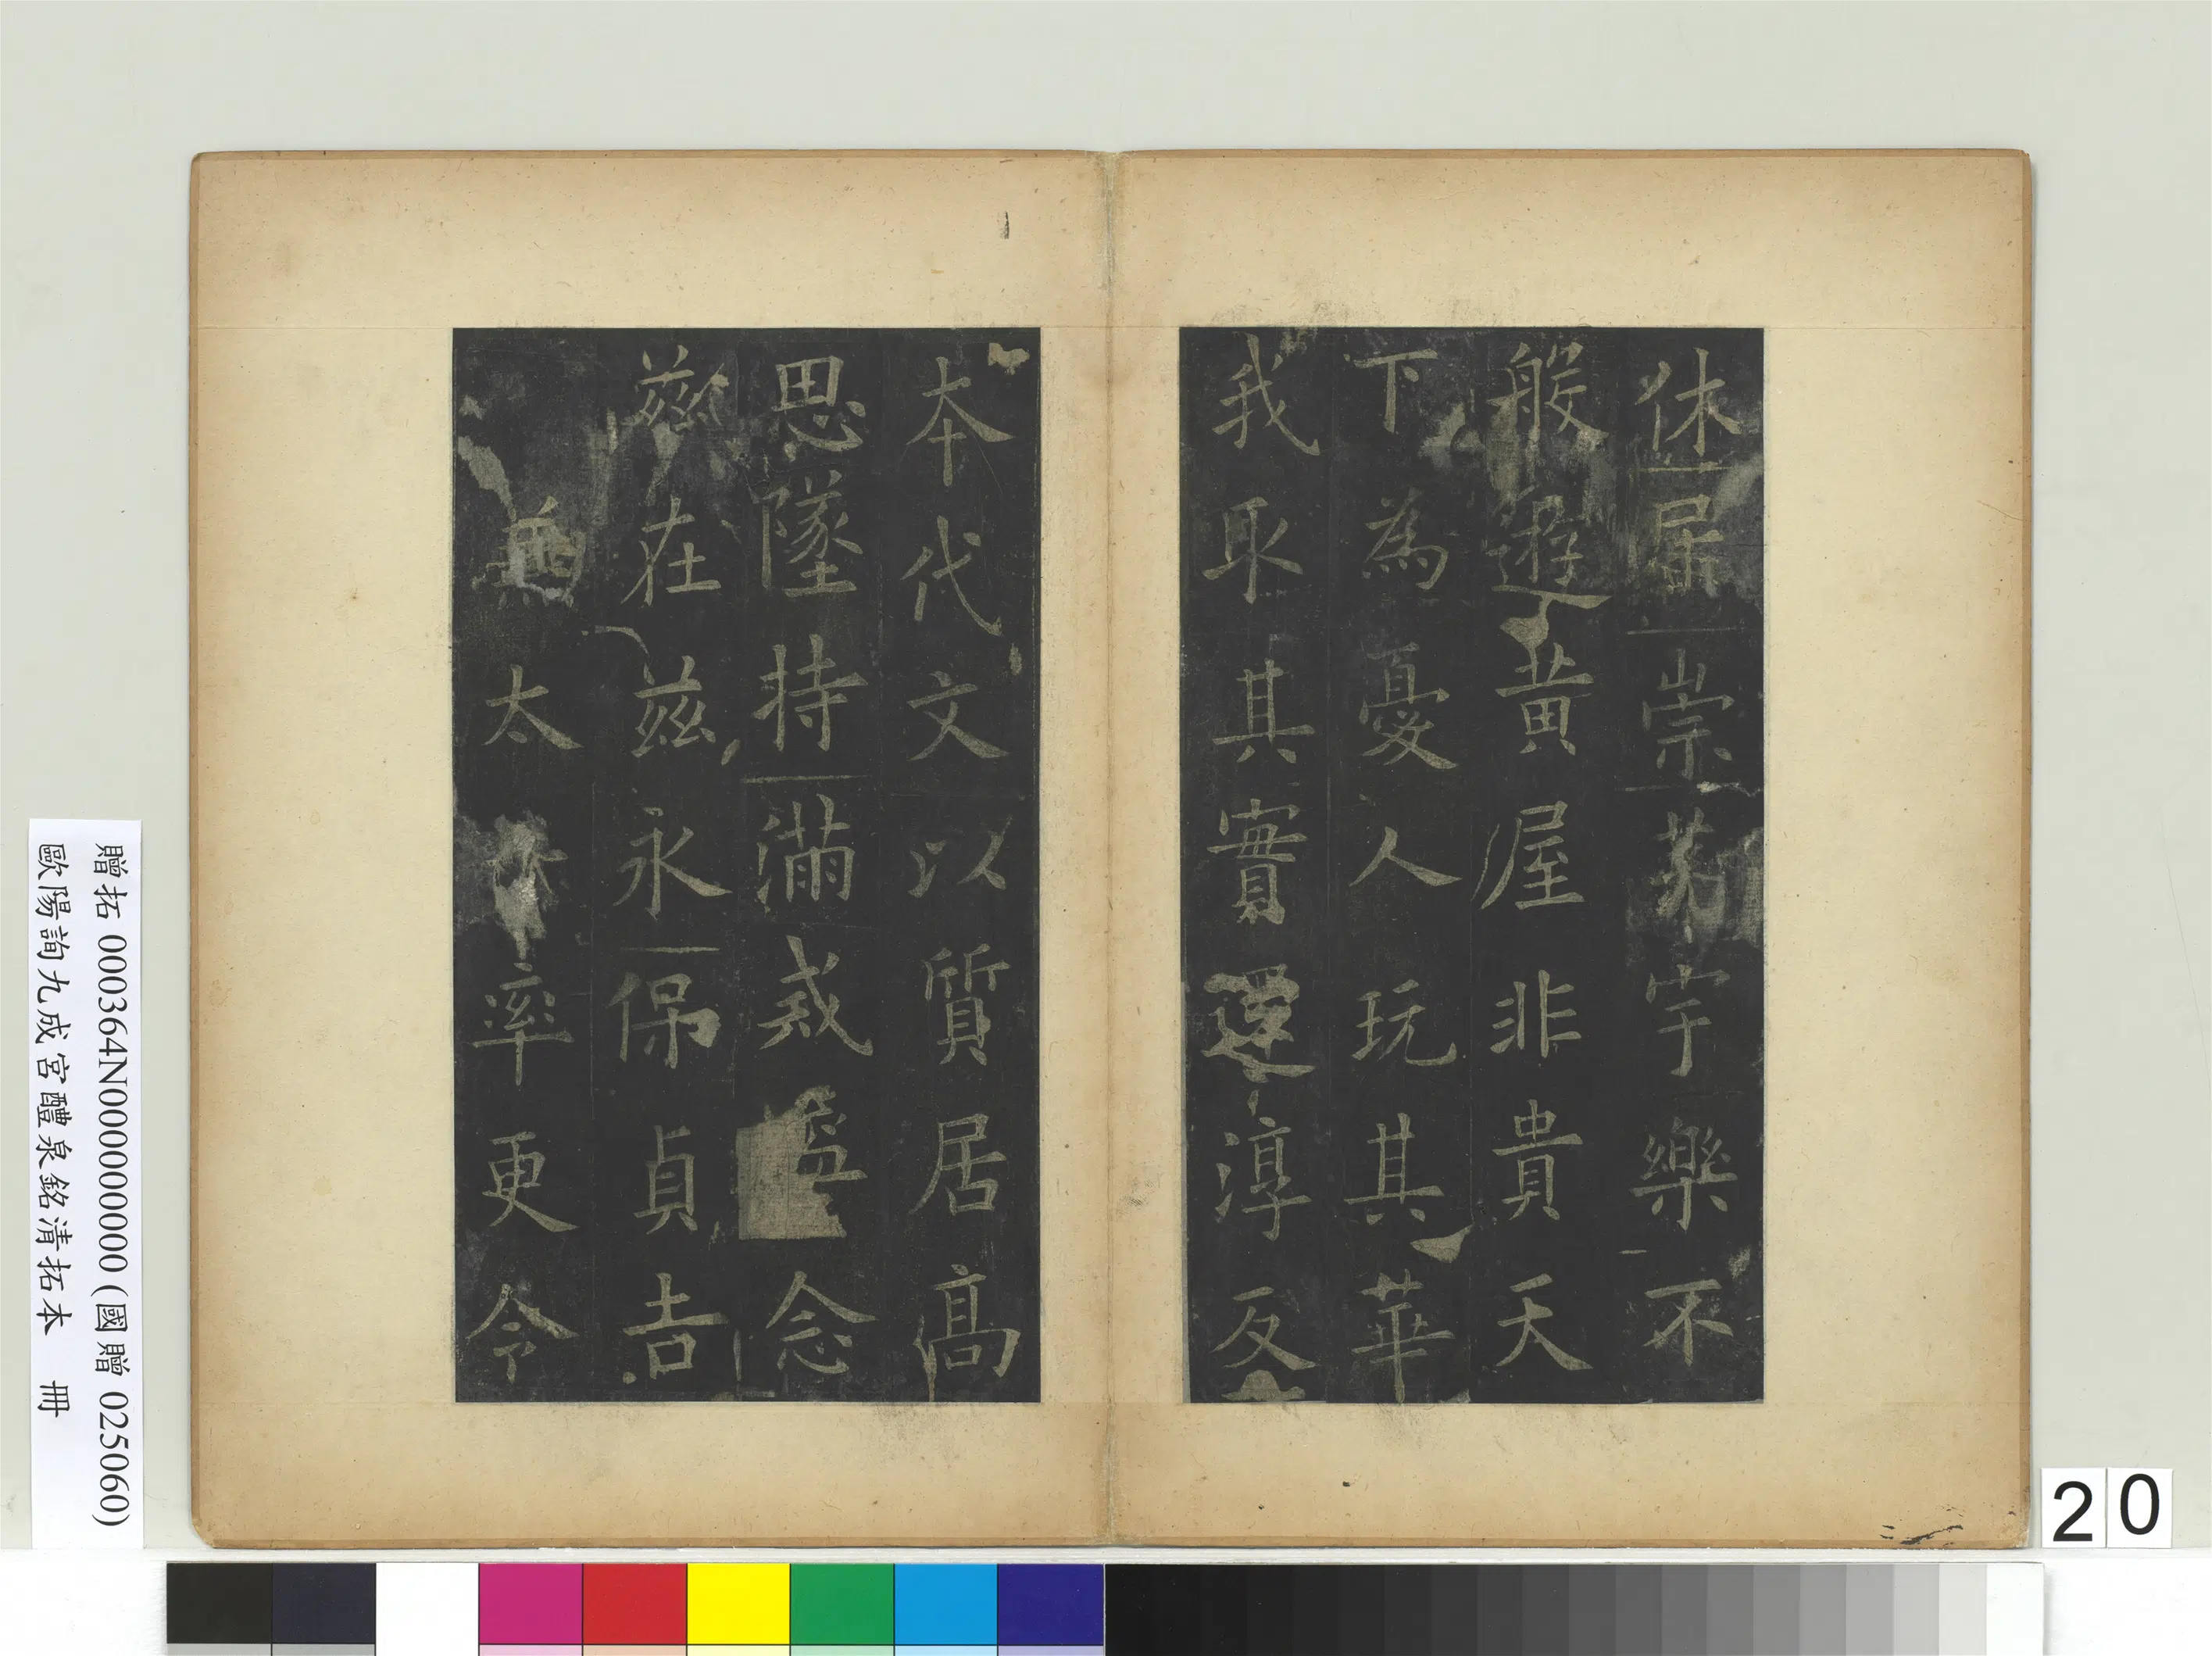 休屆崇茅宇樂不
般遊黃屋非貴天
下為憂人玩其華
我取其實還淳反
本代文以質居高
思墜持滿戒溢念
茲在茲永保貞吉
兼太子率更令
贈拓 000364N000000000 (國贈 025060)
歐陽詢九成宮醴泉銘清拓本 冊
20